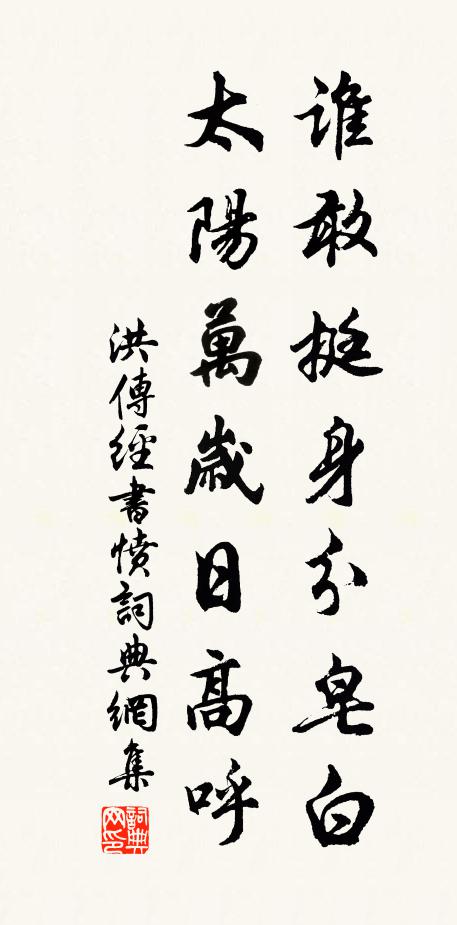 誰敢挺身分皂白
太陽萬歲日高呼
洪傳經書憤詞典網集
詞典網印